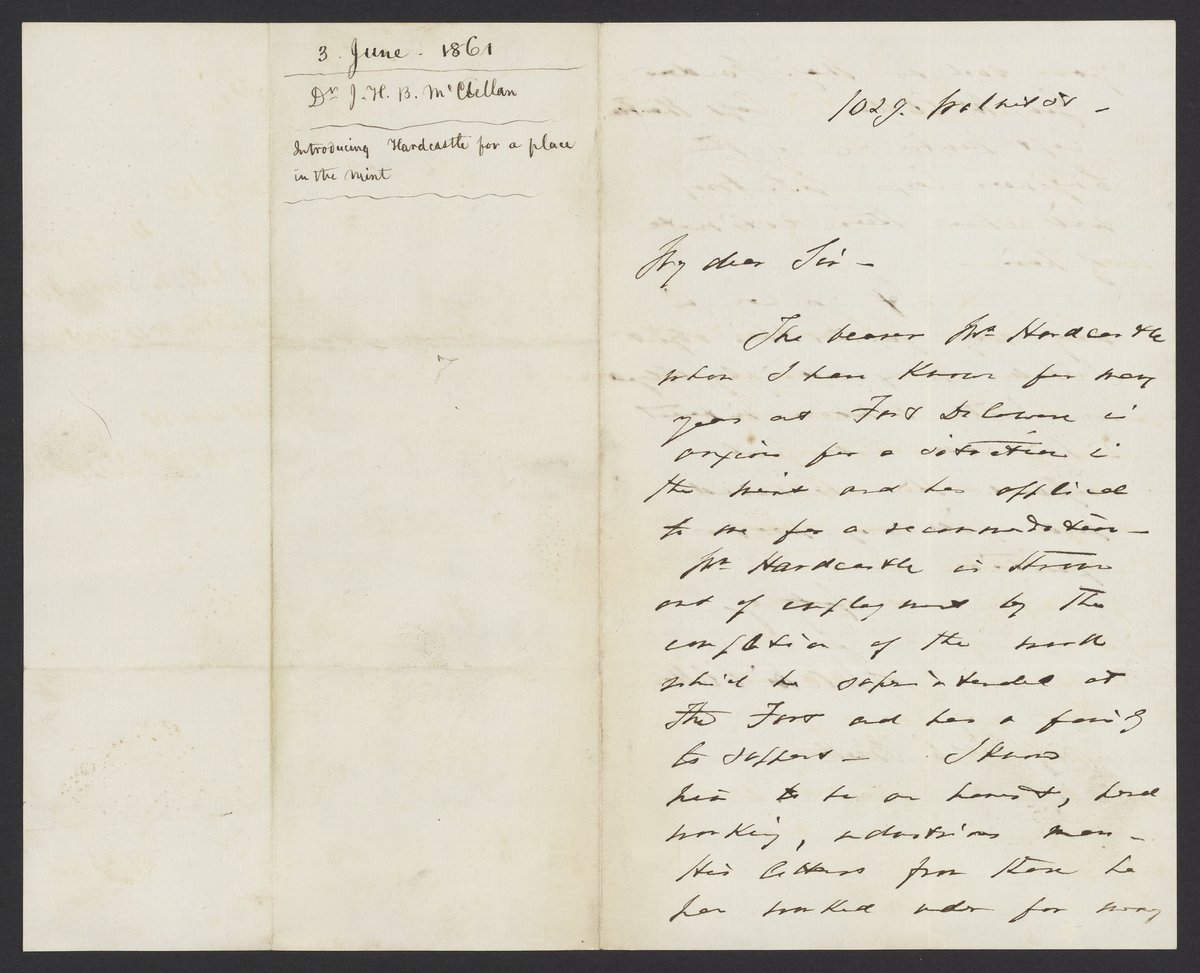 3. June. 1861
Dr J. H. B. McClellan
Introducing Hardcastle for a place
in the Mint
1029. Walnut St –
My dear Sir –
The bearer Mr Hardcastle
whom I have Known for many
years at Fort Delaware is
anxious for a situation in
the Mint and has applied
to me for a recommendation –
Mr Hardcastle is thrown
out of employment by the
completion of the work
which he superintended at
the Fort and has a family
to support – I know
him to be an honest, hard
working, industrious man –
His letters from those he
has worked under for many